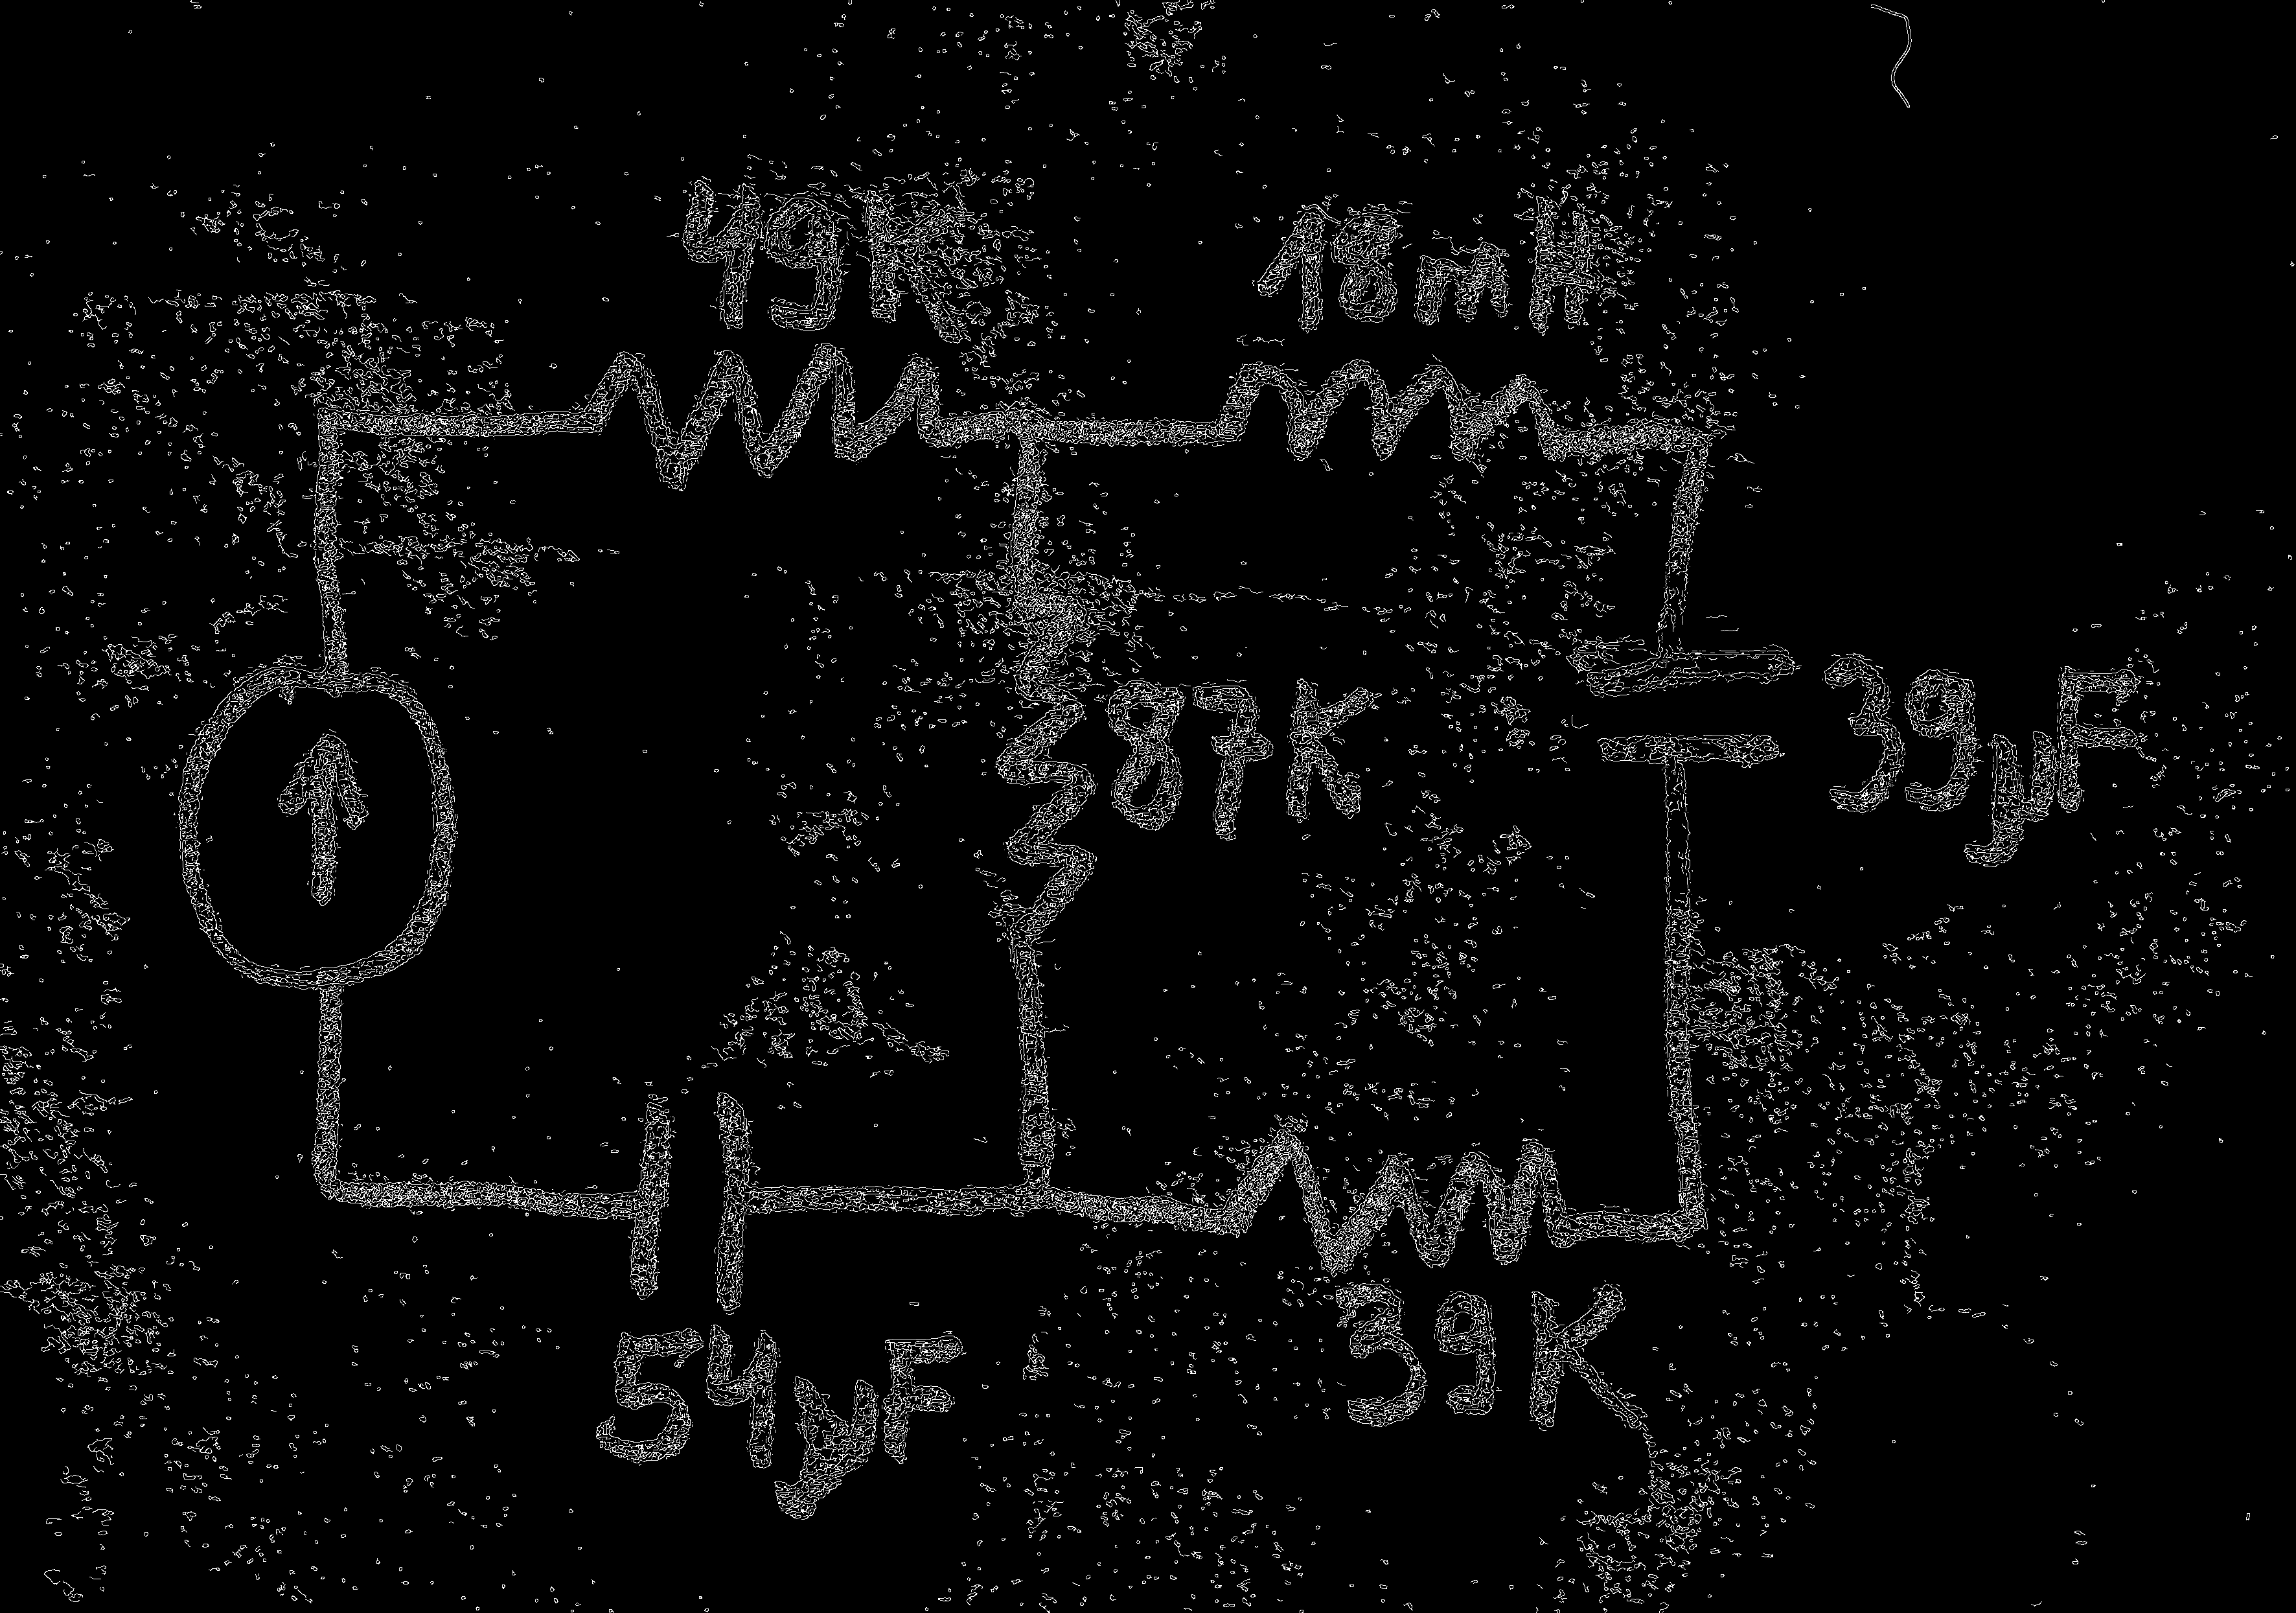 49K
18mH
87K
39µF
54µF
39K